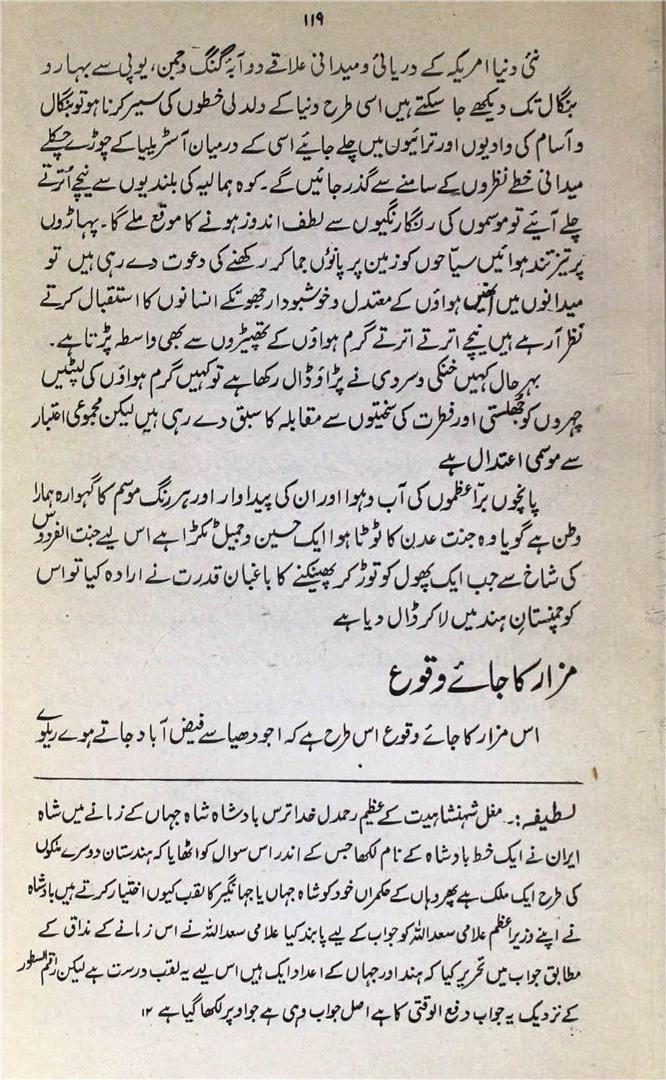 ۱۱۹
نئی دنیا امریکہ کے دریائی و میدانی علاقے دو آبۂ گنگ و جمن، یوپی سے بہار و
بنگال تک دیکھے جا سکتے ہیں اسی طرح دنیا کے دلدلی خطوں کی سیر کرنا ہو تو بنگال
و آسام کی وادیوں اور ترائیوں میں چلے جایئے اسی کے درمیان آسٹریلیا کے چوڑے چکلے
میدانی خطے نظروں کے سامنے سے گذر جائیں گے۔ کوہ ہمالیہ کی بلندیوں سے نیچے اُترتے
چلے آیئے تو موسموں کی رنگا رنگیوں سے لطف اندوز ہونے کا موقع ملے گا۔ پہاڑوں
پر تیز تند ہوائیں سیاّحوں کو زمین پر پانوٗں جما کر رکھنے کی دعوت دے رہی ہیں تو
میدانوں میں انھیں ہواؤں کے معتدل و خوشبودار جھونکے انسانوں کا استقبال کرتے
نظر آ رہے ہیں نیچے اترتے اترتے گرم ہواؤں کے تھپیڑوں سے بھی واسطہ پڑتا ہے۔
بہر حال کہیں خنکی و سردی نے پڑاؤ ڈال رکھا ہے تو کہیں گرم ہواؤں کی لپٹیں
چہروں کو جھلستی اور فطرت کی سختیوں سے مقابلہ کا سبق دے رہی ہیں لیکن مجموعی اعتبار
سے موسمی اعتدال ہے
پانچوں برّاعظموں کی آب و ہوا اور ان کی پیداوار اور ہر رنگ موسم کا گہوارہ ہمارا
وطن ہے گویا وہ جنت عدن کا ٹوٹا ہوا ایک حسین و جمیل ٹکڑا ہے اس لیے جنت الفردوس
کی شاخ سے جب ایک پھول کو توڑ کر پھینکنے کا باغبان قدرت نے ارادہ کیا تو اس
کو چمنستانِ ہند میں لا کر ڈال دیا ہے
مزار کا جائے وقوع
اس مزار کا جائے وقوع اس طرح ہے کہ اجودھیا سے فیض آباد جاتے ہوے ریلوے
لطیفہ :۔ مغل شہنشاہیت کے عظیم رحمدل خدا ترس بادشاہ شاہ جہاں کے زمانے میں شاہ
ایران نے ایک خط بادشاہ کے نام لکھا جس کے اندر اس سوال کو اٹھایا کہ ہندستان دوسرے ملکوں
کی طرح ایک ملک ہے پھر وہاں کے حکمراں خود کو شاہ جہاں یا جہانگیر کا لقب کیوں اختیار کرتے ہیں بادشاہ
نے اپنے وزیر اعظم علامی سعد اللہ کو جواب کے لیے پابند کیا علامی سعد اللہ نے اس زمانے کے مذاق کے
مطابق جواب میں تحریر کیا کہ ہند اور جہاں کے اعداد ایک ہیں اس لیے یہ لقب درست ہے لیکن راقم السطور
کے نزدیک یہ جواب دفع الوقتی کا ہے اصل جواب وہی ہے جو اوپر لکھا گیا ہے ۱۲